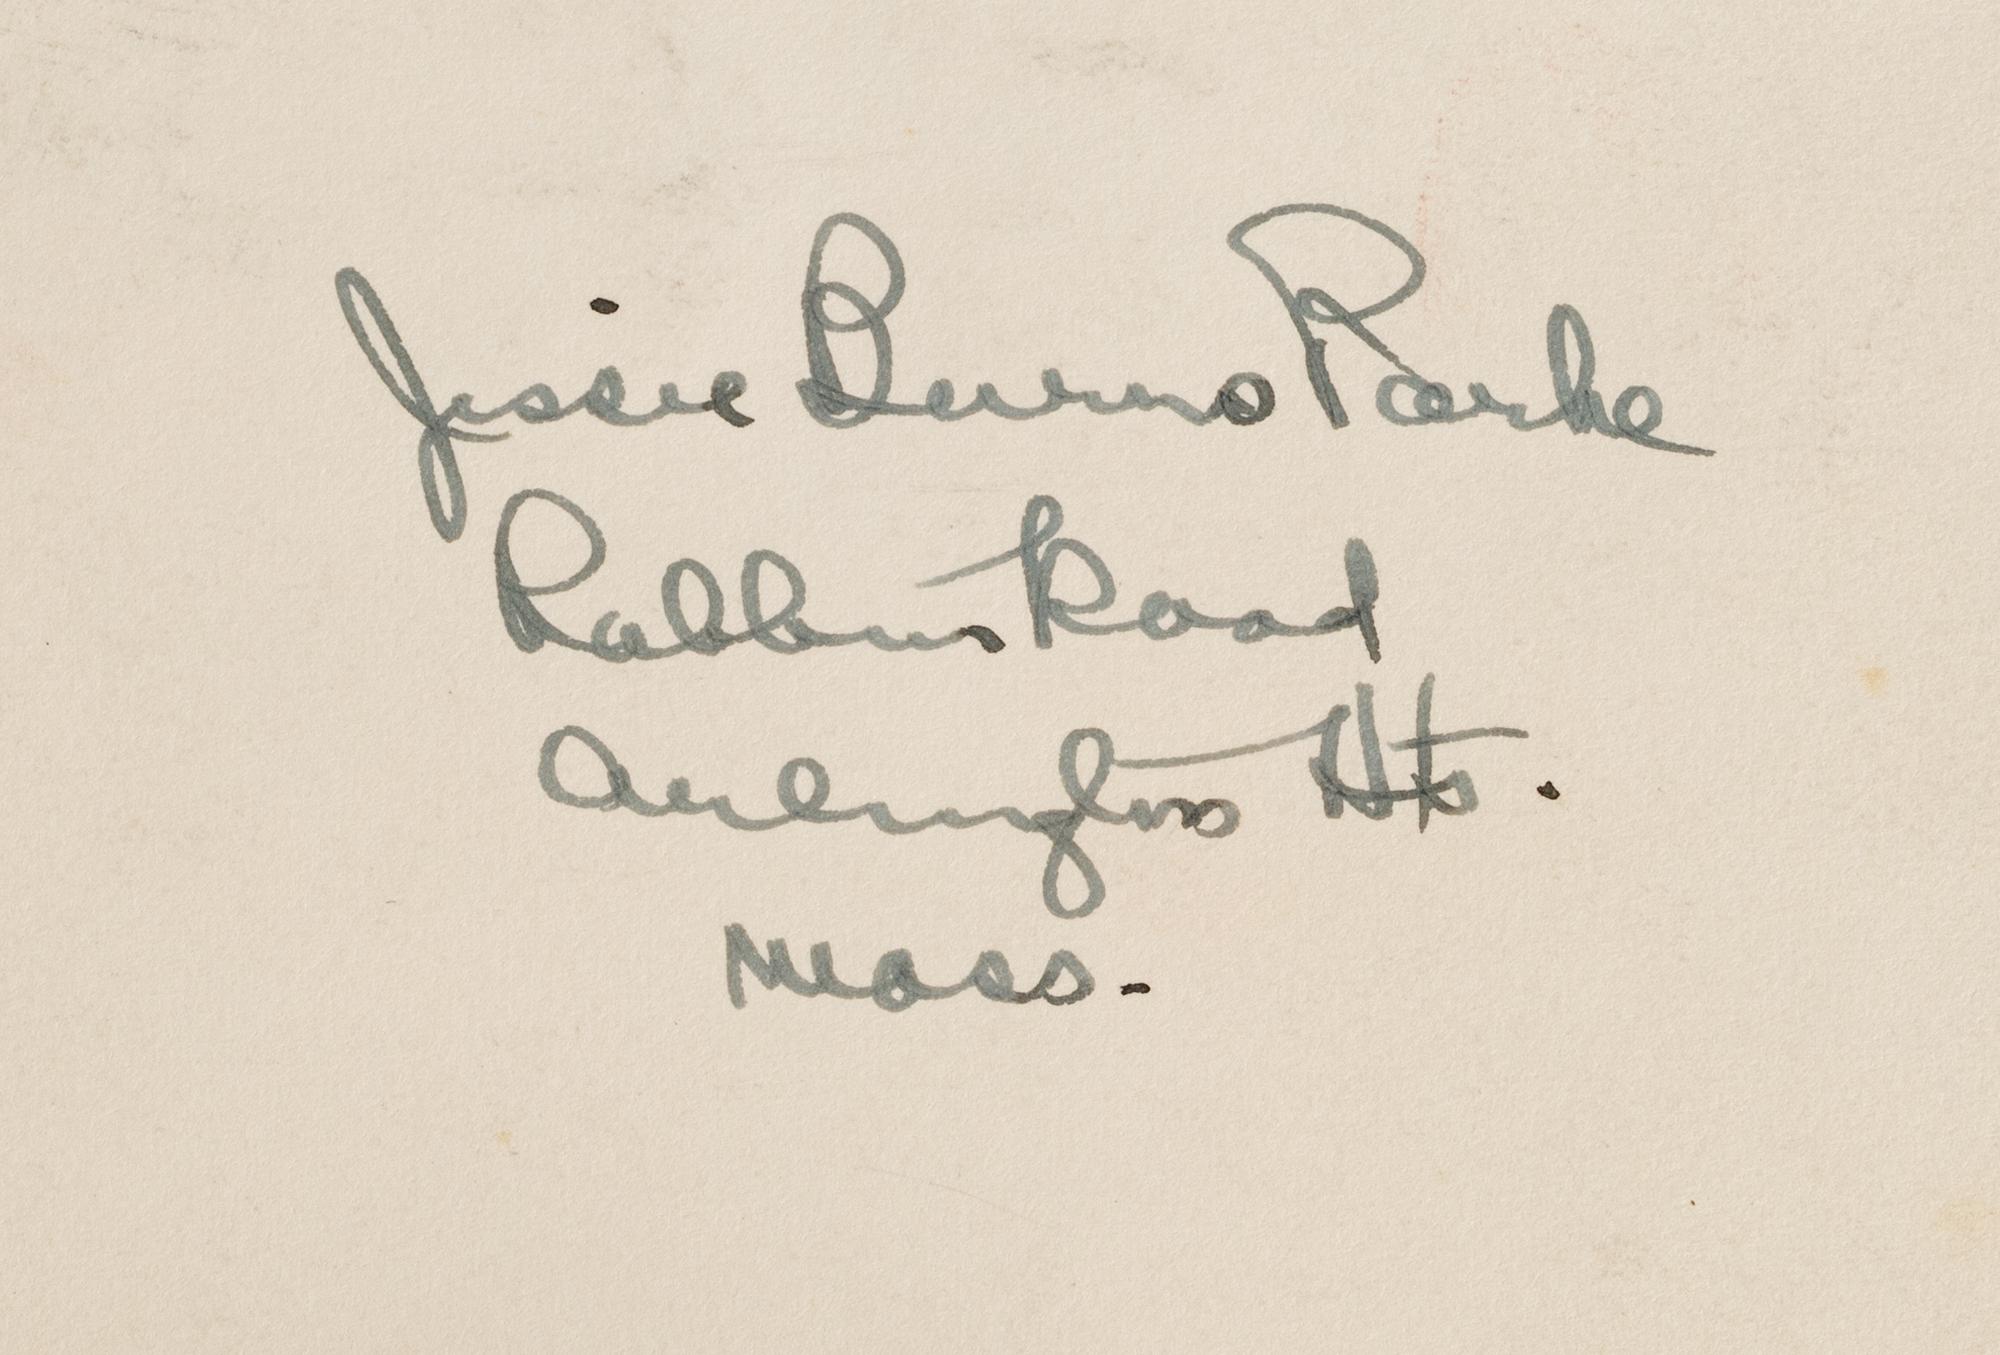 Jessie Burns Parke
Robbins Road
Arlington Hts.
Mass.